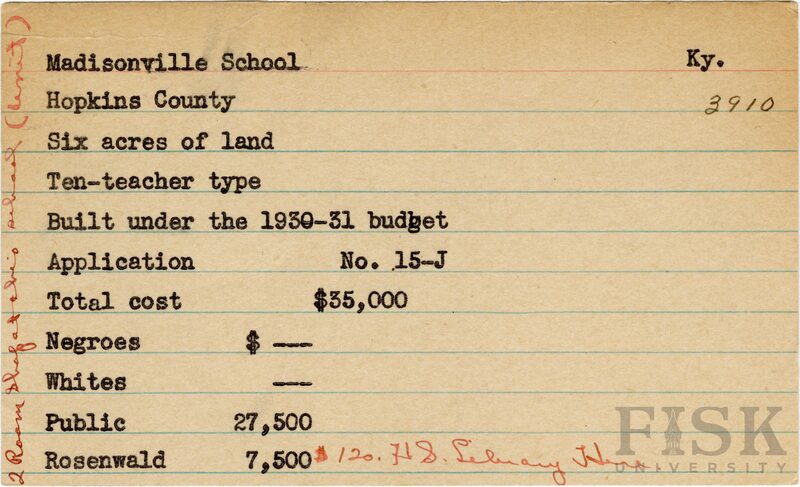 Madisonville School Ky.
Hopkins County 3910
Six acres of land
Ten-teacher type
Built under the 1930-31 budget
Application No. 15-J
Total cost $35,000
Negroes $ —
Whites —
Public 27,500
Rosenwald 7,500 $120. H.S. Library
2 Room Shop at this school
FISK
UNIVERSITY